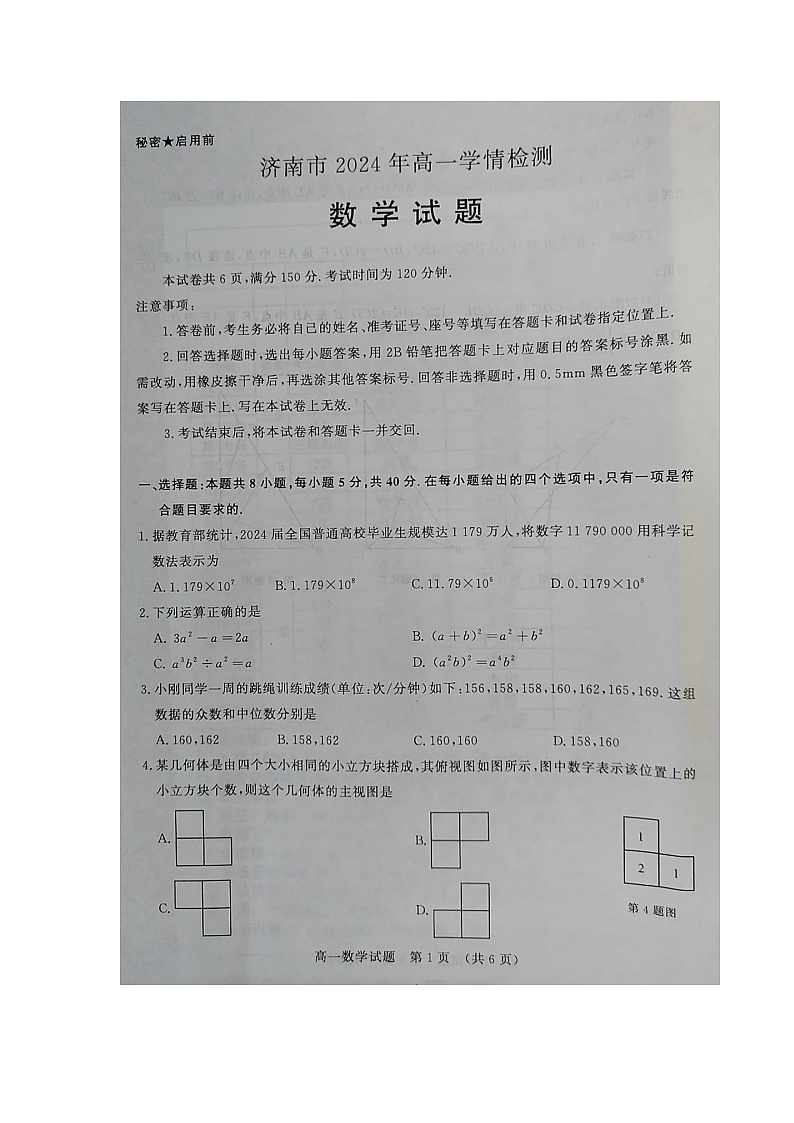 秘密★启用前
济南市 2024 年高一学情检测
数学试题
本试卷共 6 页,满分 150 分. 考试时间为 120 分钟.
注意事项:
1. 答卷前,考生务必将自己的姓名、准考证号、座号等填写在答题卡和试卷指定位置上.
2. 回答选择题时,选出每小题答案,用 2B 铅笔把答题卡上对应题目的答案标号涂黑. 如
需改动,用橡皮擦干净后,再选涂其他答案标号. 回答非选择题时,用 0.5mm 黑色签字笔将答
案写在答题卡上. 写在本试卷上无效.
3. 考试结束后,将本试卷和答题卡一并交回.
一、选择题:本题共 8 小题,每小题 5 分,共 40 分. 在每小题给出的四个选项中,只有一项是符
合题目要求的.
1. 据教育部统计,2024 届全国普通高校毕业生规模达 1 179 万人,将数字 11 790 000 用科学记
数法表示为
A. 1.179×10⁷ B. 1.179×10⁸ C. 11.79×10⁶ D. 0.1179×10⁸
2. 下列运算正确的是
A. 3a²－a＝2a B. (a＋b)²＝a²＋b²
C. a³b²÷a²＝a D. (a²b)²＝a⁴b²
3. 小刚同学一周的跳绳训练成绩(单位:次/分钟)如下:156,158,158,160,162,165,169. 这组
数据的众数和中位数分别是
A. 160,162 B. 158,162 C. 160,160 D. 158,160
4. 某几何体是由四个大小相同的小立方块搭成,其俯视图如图所示,图中数字表示该位置上的
小立方块个数,则这个几何体的主视图是
A. B.
1
2 1
C. D.
第 4 题图
高一数学试题 第 1 页 (共 6 页)